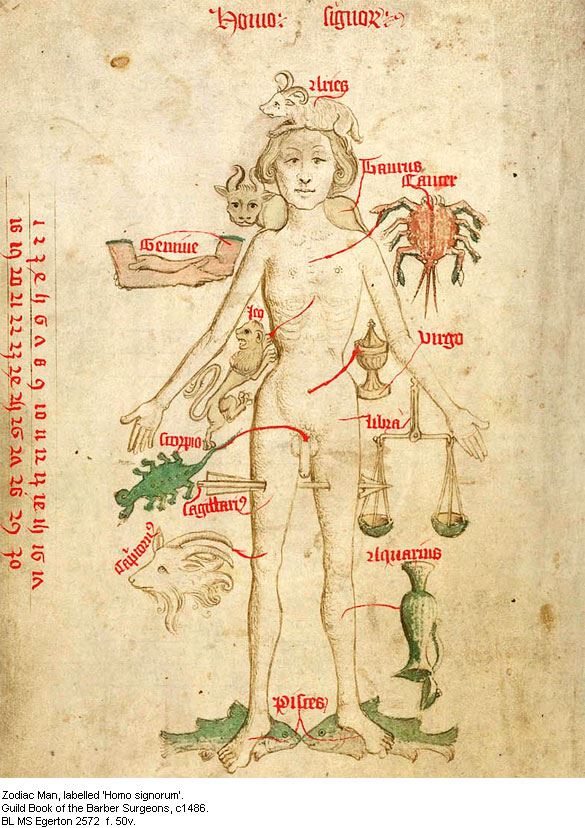 Homo: signor
Aries
Taurus
Cancer
Gemine
leo
Virgo
libra
Scorpio
Sagittari9
Aquarius
Pisces
1 2 3 4 5 6 7 8 9 10 11 12 13 14 15 16 17
18 19 20 21 22 23 24 25 26 27 28 29 30
Zodiac Man, labelled 'Homo signorum'.
Guild Book of the Barber Surgeons, c1486.
BL MS Egerton 2572  f. 50v.